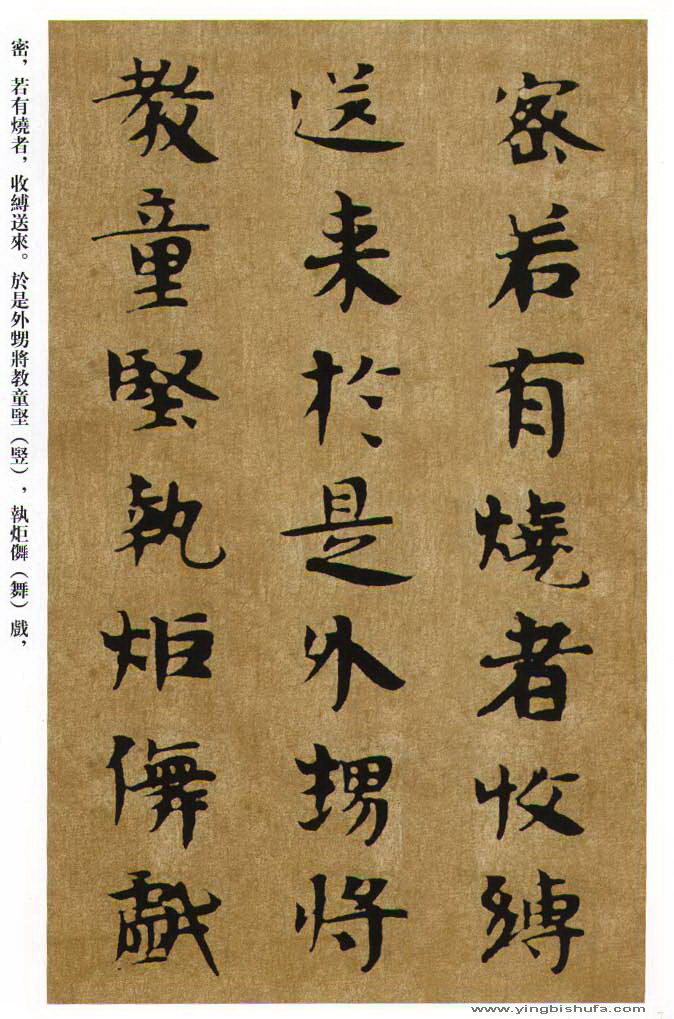 密若有燒者收縛
送来於是外甥將
教童堅執炬儛戲
密，若有燒者，收縛送來。於是外甥將教童堅（竪），執炬儛（舞）戲，
www.yingbishufa.com
7